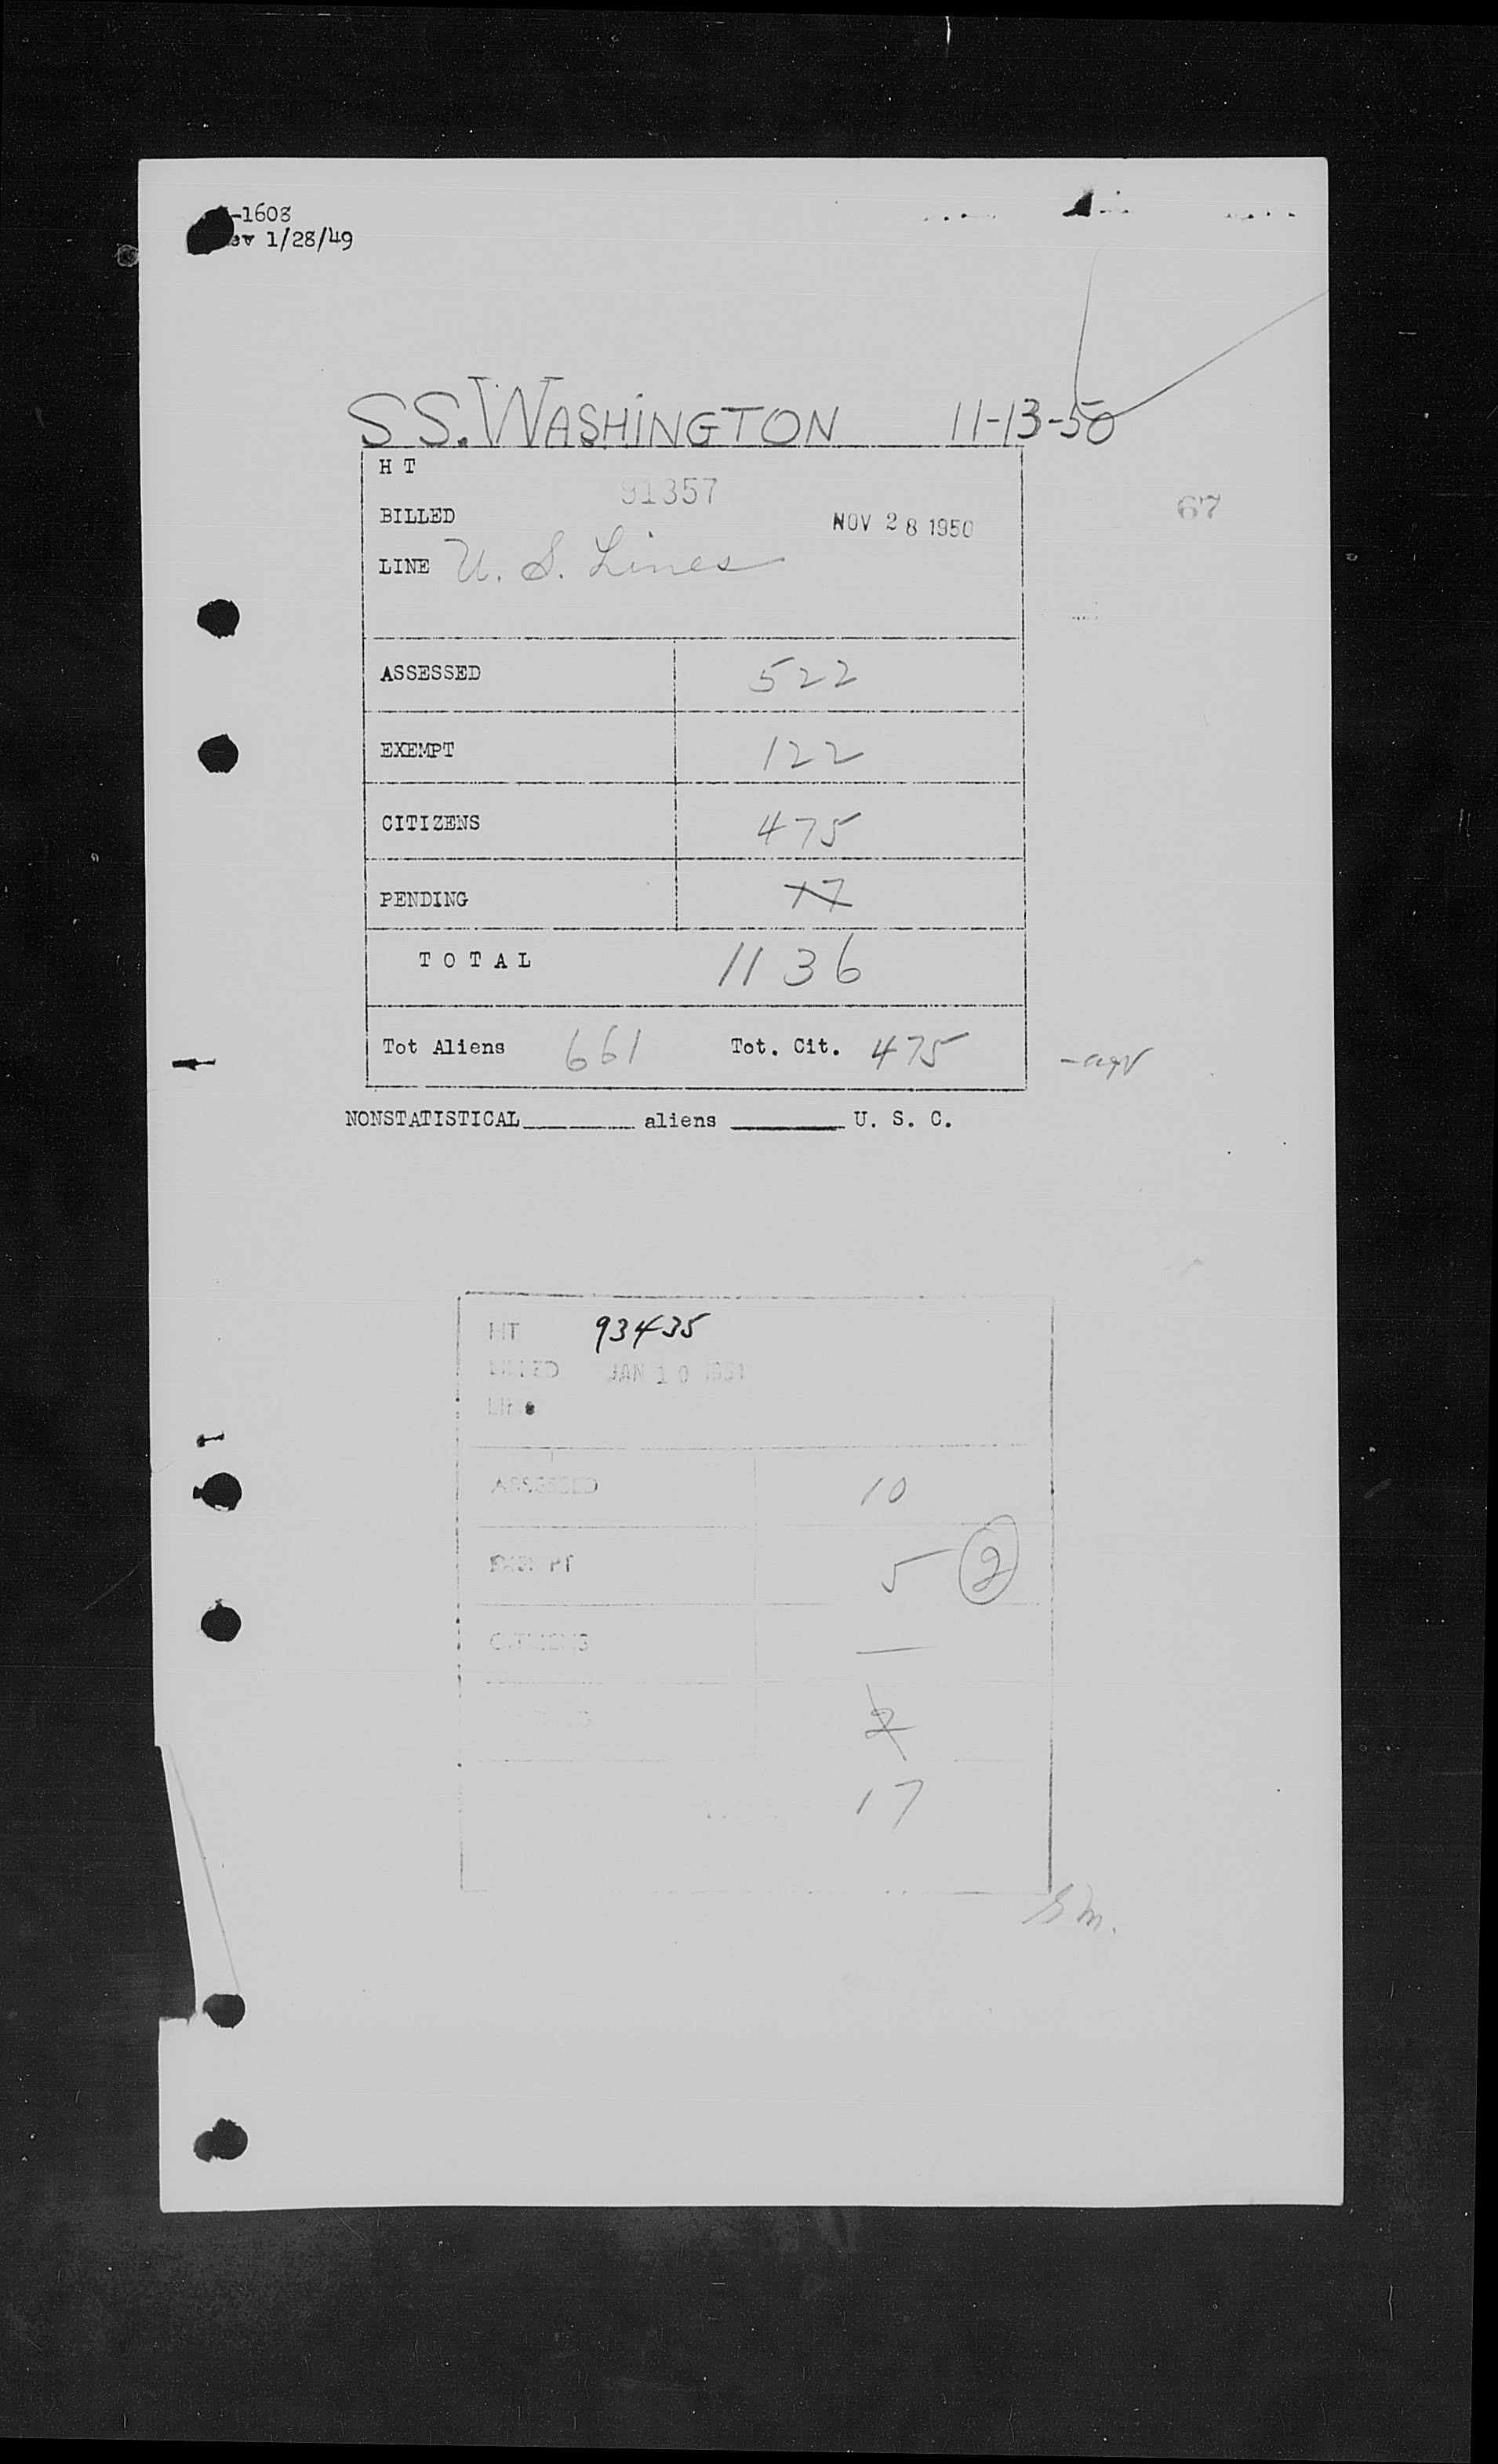 -1608
ev 1/28/49
SS. WASHINGTON 11-13-50
H T
91357
BILLED NOV 28 1950
67
LINE U. S. Lines
ASSESSED 522
EXEMPT 122
CITIZENS 475
PENDING 17
TOTAL 1136
Tot Aliens 661 Tot. Cit. 475
NONSTATISTICAL aliens U. S. C.
HT 93435
JAN 10 1951
LINE
ASSESSED 10
EXEMPT 5 2
CITIZENS —
2
17